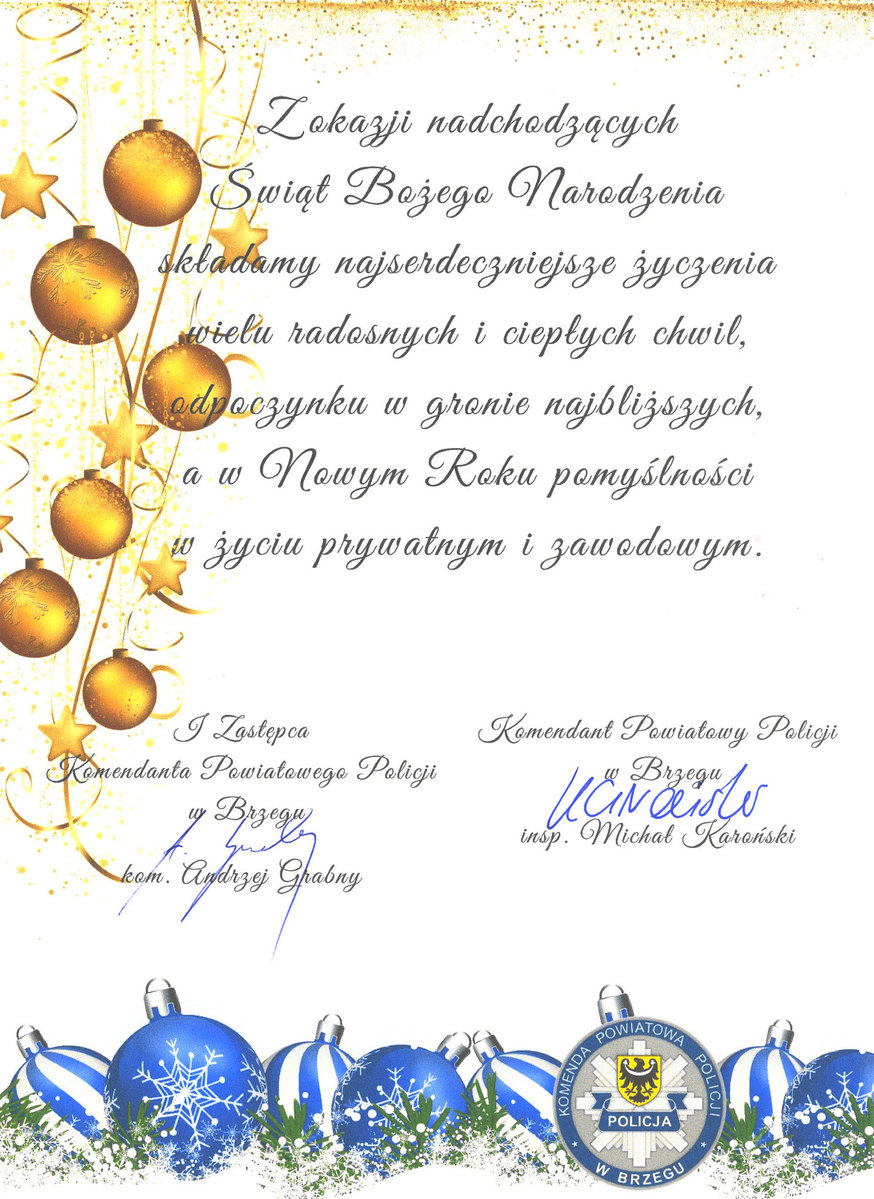 Z okazji nadchodzących
Świąt Bożego Narodzenia
składamy najserdeczniejsze życzenia
wielu radosnych i ciepłych chwil,
odpoczynku w gronie najbliższych,
a w Nowym Roku pomyślności
w życiu prywatnym i zawodowym.
I Zastępca
Komendanta Powiatowego Policji
w Brzegu
kom. Andrzej Grabny
Komendant Powiatowy Policji
w Brzegu
insp. Michał Karoński
KOMENDA POWIATOWA POLICJI
POLICJA
W BRZEGU